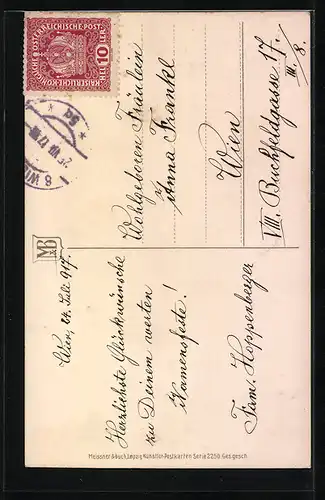 Wien, 24. Juli 917.
Herzlichste Glückwünsche
zu Deinem werten
Namensfeste!
Fam. Hoppenberger
MB
Meissner & Buch, Leipzig Künstler-Postkarten Serie 2250 Ges. gesch.
KAISERLICHE KÖNIGLICHE ÖSTERREICHISCHE POST
HELLER
10
8 WIEN
Wohlgeboren Fräulein
Anna Frankl
Wien
VIII. Buchfeldgasse 17.
III/8.